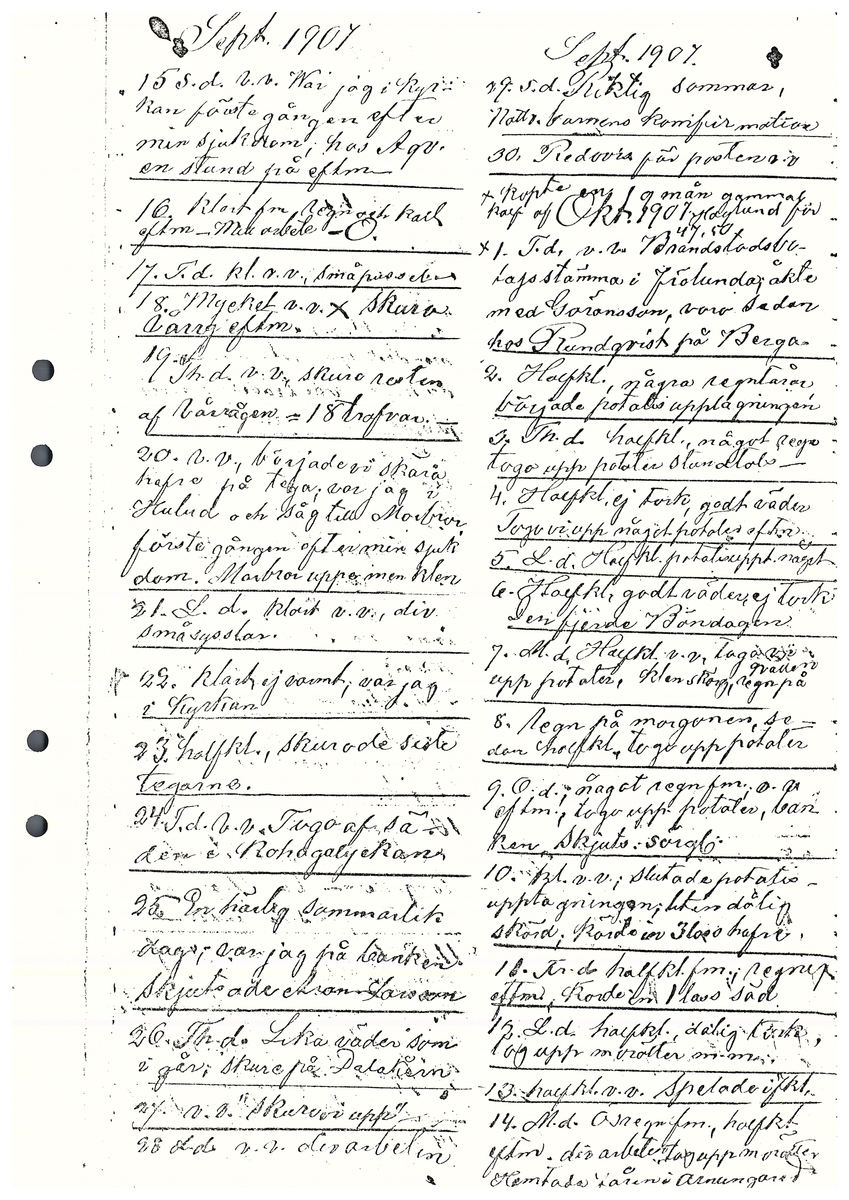 Sept. 1907
15 S.d. v.v. War jag i Kyr-
kan förste gången efter
min sjukdom; hos Aqv.
en stund på eftm
16. Klart fm, regn och kall
eftm – Mell arbete – O.
17. T.d. kl. v.v., småpassel
18. Mycket v.v. x skuro
Vårrg eftm.
19. Th.d. v.v., skuro resten
af Vårrågen = 18 trafvar
20. v.v., började vi skära
hafre på tega; var jag i
Hulud och såg till Morbror
förste gången efter min sjuk
dom. Morbror uppe men klen
21. L.d. klart v.v., div.
småsysslor.
22. Klart, ej varmt; var jag
i Kyrkan
23. halfkl., skurode siste
tegarne.
24. T.d. v.v. Togo af sä-
den i Kohagalyckan
25. En härlig sommarlik
dag; var jag på banken
skjutsade Larsson
26. Th.d. Lika väder som
i går; skure på Dalatkern
27. v.v. "skurovi upp"
28 L.d. v.v. div arbeten
Sept. 1907.
29. S.d. Riktig sommar,
Nattv. barnens konfirmation
30. Redovis för posten v.v
x Köpte en 1 q mån gammal
kalf af Haglund för
47,50
Okt. 1907
x 1. T.d. v.v. Brandstodsbo-
lagsstämma i Frölunda; åkte
med Göransson, voro sedan
hos Rundqvist på Berga
2. Halfkl., några regntårar
började potatisupptagningen
3. Th.d. halfkl., något regn
togo upp potater stundtals –
4. Halfkl, ej tork, godt väder
Togo vi upp något potater eftm
5. L.d. Halfkl. potatisuppt. något
6. Halfkl, godt väder, ej tork
den fjerde Böndagen
7. M.d. Halfkl. v.v, togo vi
upp potater, klen skörd, regn på
qvällen
8. Regn på morgonen, se-
dan halfkl, togo upp potater
9. O.d.; något regn fm. v.v
eftm., togo upp potater, ban
ken, skjuts: sörgl.
10. Kl. v.v.; slutade potatis-
upptagningen; liten dålig
skörd; Körde in 3 lass hafre.
11. Fr.d. halfkl. fm.; regn
eftm; Körde in 1 lass säd
12. L.d. halfkl, dålig tork,
tog upp morötter m.m.
13. halfkl. v.v. spelade i kl.
14. M.d. Ösregn fm., halfkl
eftm. div arbete; tog upp morötter
Hemtade i Arnungared